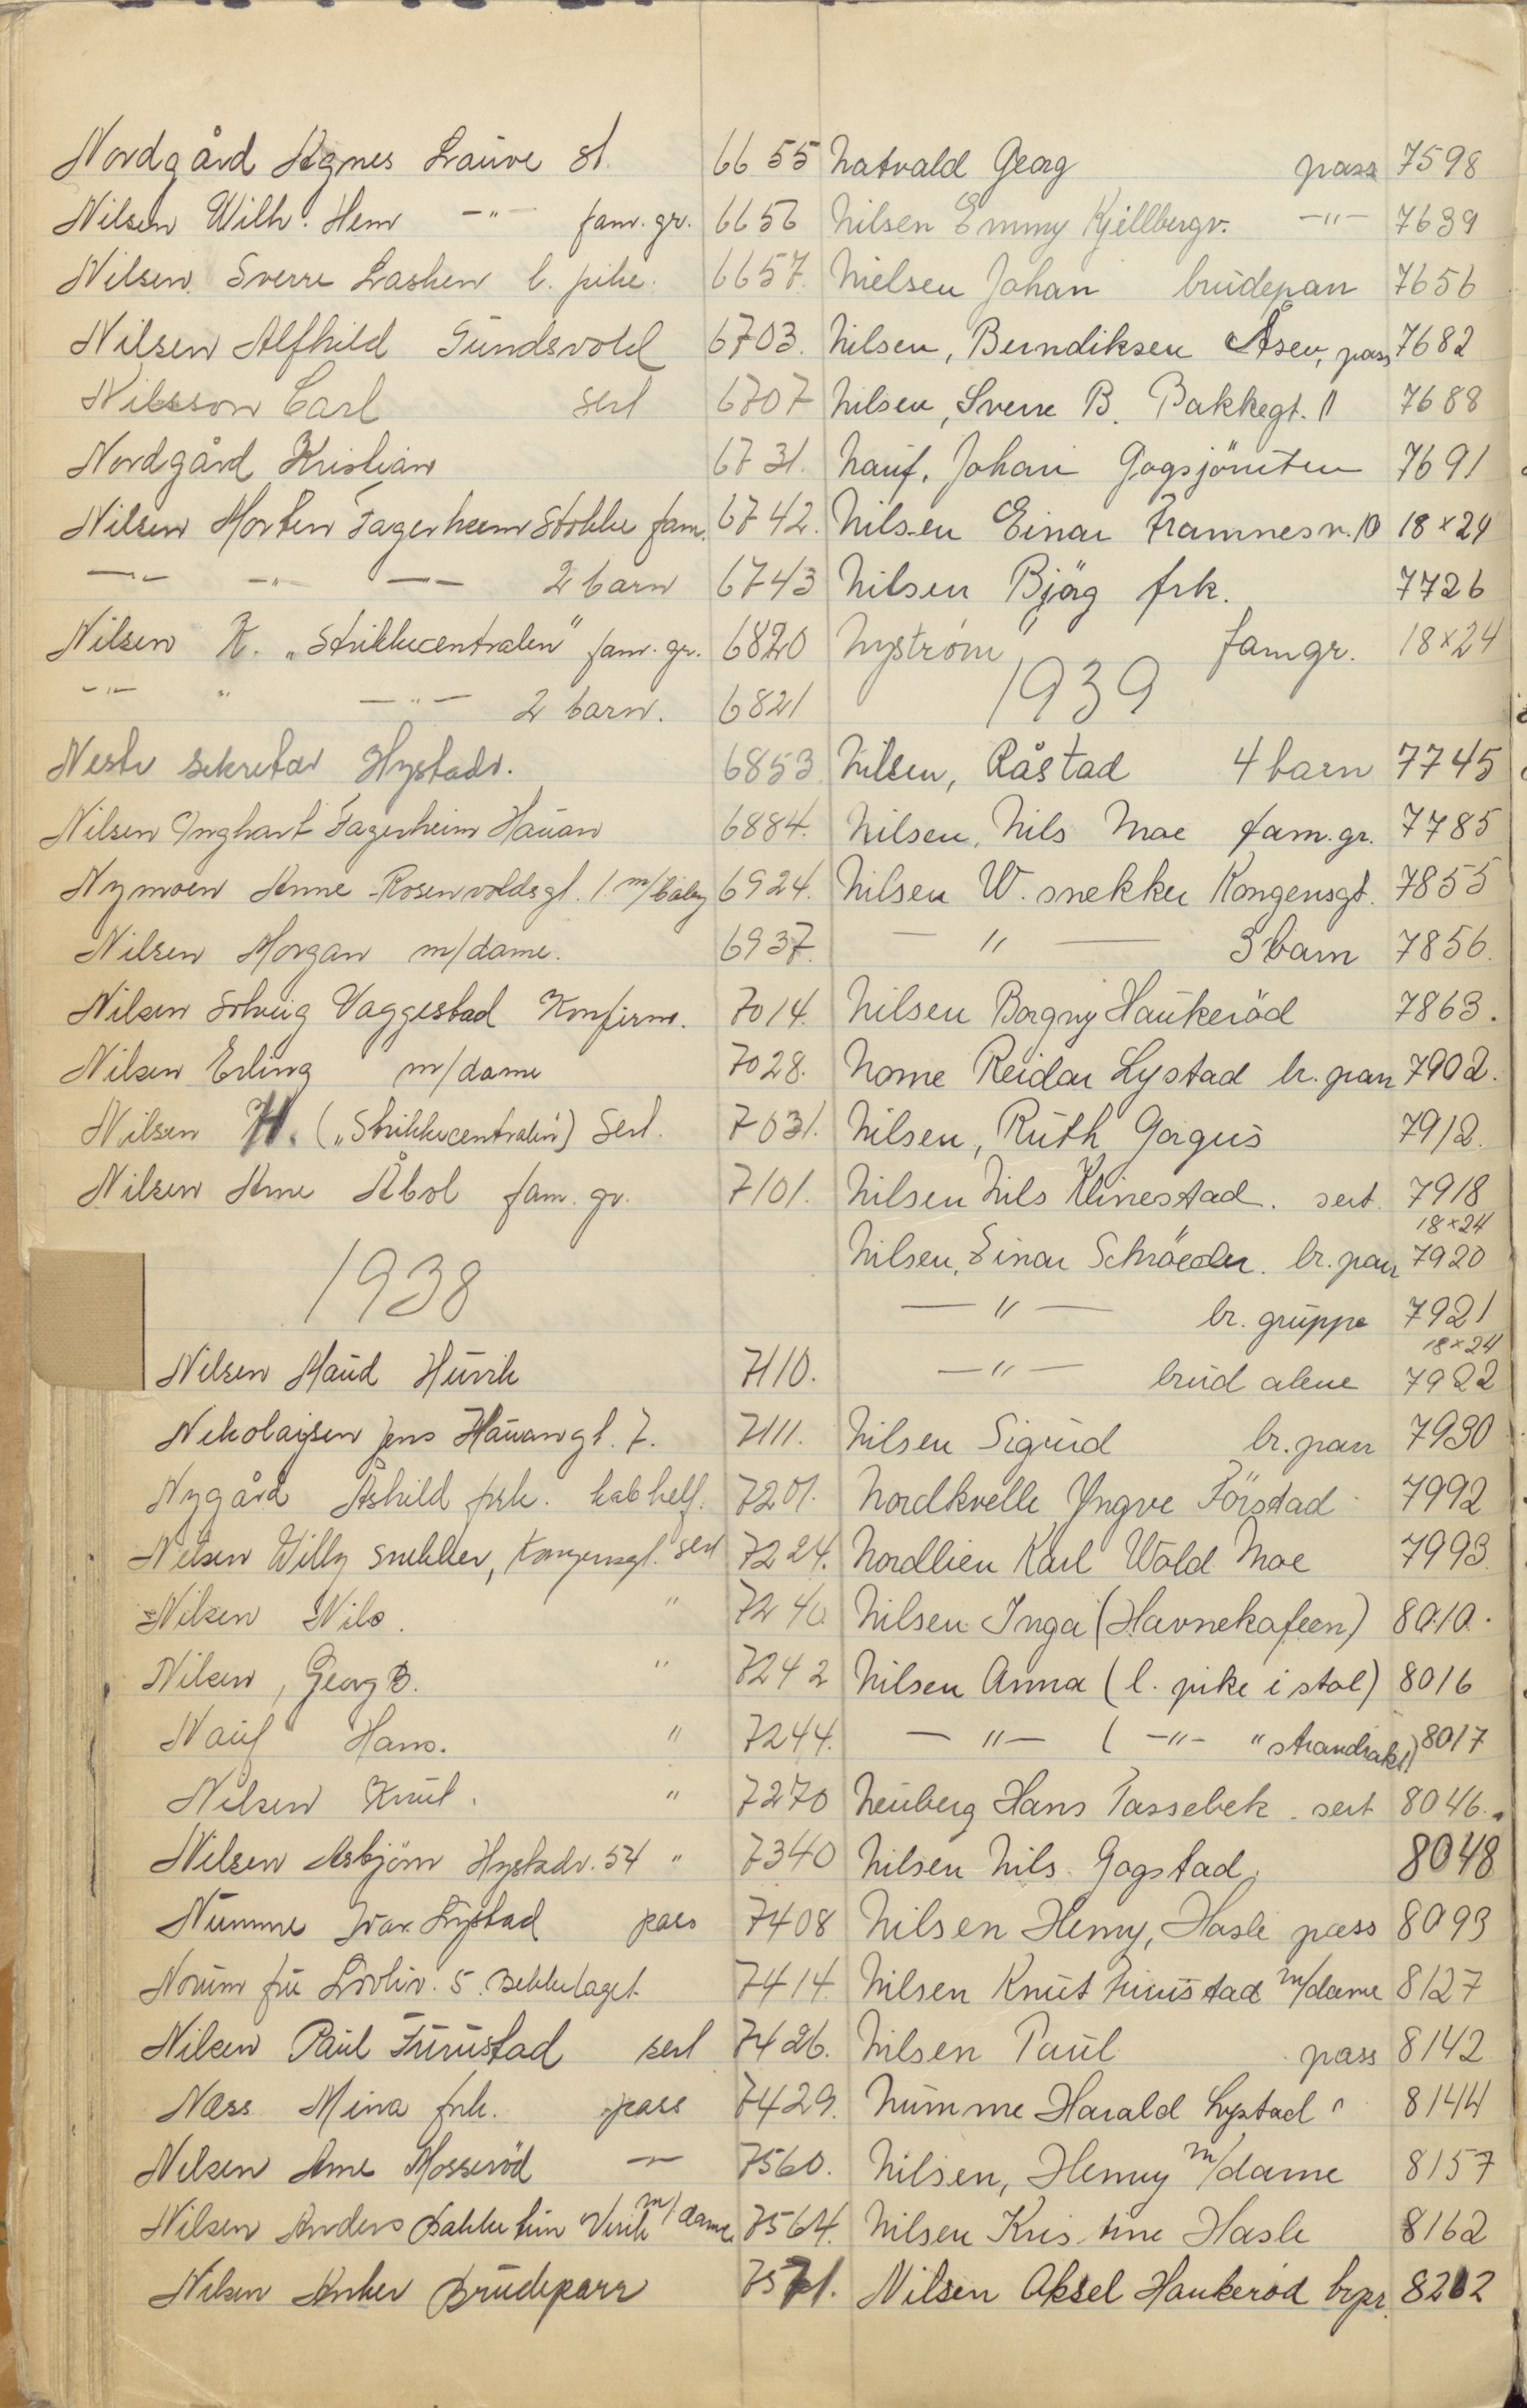 Nordgård Agnes Lauve st. 6655
Nilsen Wilh. Hem -"- fam. gr. 6656
Nilsen Sverre Lasken l. pike. 6657.
Nilsen Alfhild Sundsvold 6703.
Nilsson Carl sert 6707
Nordgård Kristian 6731.
Nilsen Morten Fagerheim Stokke fam. 6742.
-"- -"- -"- 2 barn 6743
Nilsen K. „Strikkecentralen" fam. gr. 6820
-"- " -"- 2 barn. 6821
Neste sekretær Hystadv. 6853
Nilsen Inghart Fagerheim Hauan 6884.
Nymoen Anne Rosenvoldsgt. 1. m/baby 6924.
Nilsen Morgan m/dame. 6937.
Nilsen Solveig Vaggestad Konfirm. 7014.
Nilsen Erling m/dame 7028.
Nilsen H. („Strikkecentralen") Sert. 7031.
Nilsen Arne Åbol fam. gr. 7101.
1938
Nilsen Maud Huvik 7110.
Nikolaysen Jens Hauangt. 7. 7111.
Nygård Åshild frk. kabhelf. 7201.
Nilsen Willy snekker, Kongensgt. sert 7224.
Nilsen Nils. " 7240
Nilsen, Georg B. " 7242
Nauf Hans. " 7244.
Nilsen Knut. " 7270
Nilsen Asbjörn Hystadv. 54 " 7340
Numme Ivar Lystad pass 7408
Norum fru Lovliv. 5. Bekkelaget 7414.
Nilsen Paul Furustad sert 7426.
Næss Mina frk. pass 7429.
Nilsen Arne Mosseröd -"- 7560.
Nilsen Anders Bakketun Virik m/dame 7564.
Nilsen Anker Brudeparr 7571.
Natvald Georg pass 7598
Nilsen Emmy Kjellbergv. -"- 7639
Nielsen Johan brudepar 7656
Nilsen, Berndiksen Åsen, pass 7682
Nilsen, Sverre B. Bakkegt. 11 7688
Nauf, Johan Gogsjöruten 7691
Nilsen Einar Framnesv. 10 18×24
Nilsen Bjørg frk. 7726
Nyström famgr. 18×24
1939
Nilsen, Råstad 4 barn 7745
Nilsen, Nils Moe fam. gr. 7785
Nilsen W. snekker Kongensgt. 7855
-"- 3 barn 7856.
Nilsen Borgny Haukeröd 7863.
Nome Reidar Lystad br. par 7902.
Nilsen, Ruth Gorgus 7912.
Nilsen Nils Klinestad. sert. 7918
18×24
Nilsen, Einar Schröeder. br. par 7920
-"- br. gruppe 7921
18×24
-"- brud alene 7922
Nilsen Sigurd br. par 7930
Nordkvelle Yngve Förstad 7992
Nordlien Karl Wold Moe 7993.
Nilsen Inga (Havnekafeen) 8010.
Nilsen Anna (l. pike i stol) 8016
-"- ( -"- " strandrakt) 8017
Neuberg Hans Tassebek. sert 8046.
Nilsen Nils Gogstad. 8048
Nilsen Henry, Hasle pass 8093
Nilsen Knut Furustad m/dame 8127
Nilsen Paul pass 8142
Numme Harald Lystad " 8144
Nilsen, Henry m/dame 8157
Nilsen Kristine Hasle 8162
Nilsen Aksel Haukerød brpr. 8202